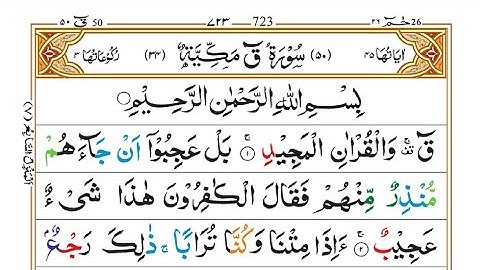 ق ٓ 50 ٥٠ ٧٢٣ 723 حٰمٓ 26 ٢٦
اٰيَاتُهَا ٤٥ (٥٠) سُوْرَةُ قٓ مَكِّيَّةٌ (٣٤) رُكُوْعَاتُهَا ٣
بِسْمِ اللّٰهِ الرَّحْمٰنِ الرَّحِيْمِ
قٓ ۚ وَالْقُرْاٰنِ الْمَجِيْدِ ۚ ١ بَلْ عَجِبُوْۤا اَنْ جَآءَهُمْ
مُّنْذِرٌ مِّنْهُمْ فَقَالَ الْكٰفِرُوْنَ هٰذَا شَيْءٌ
عَجِيْبٌ ۚ ٢ ءَاِذَا مِتْنَا وَكُنَّا تُرَابًا ۚ ذٰلِكَ رَجْعٌۢ